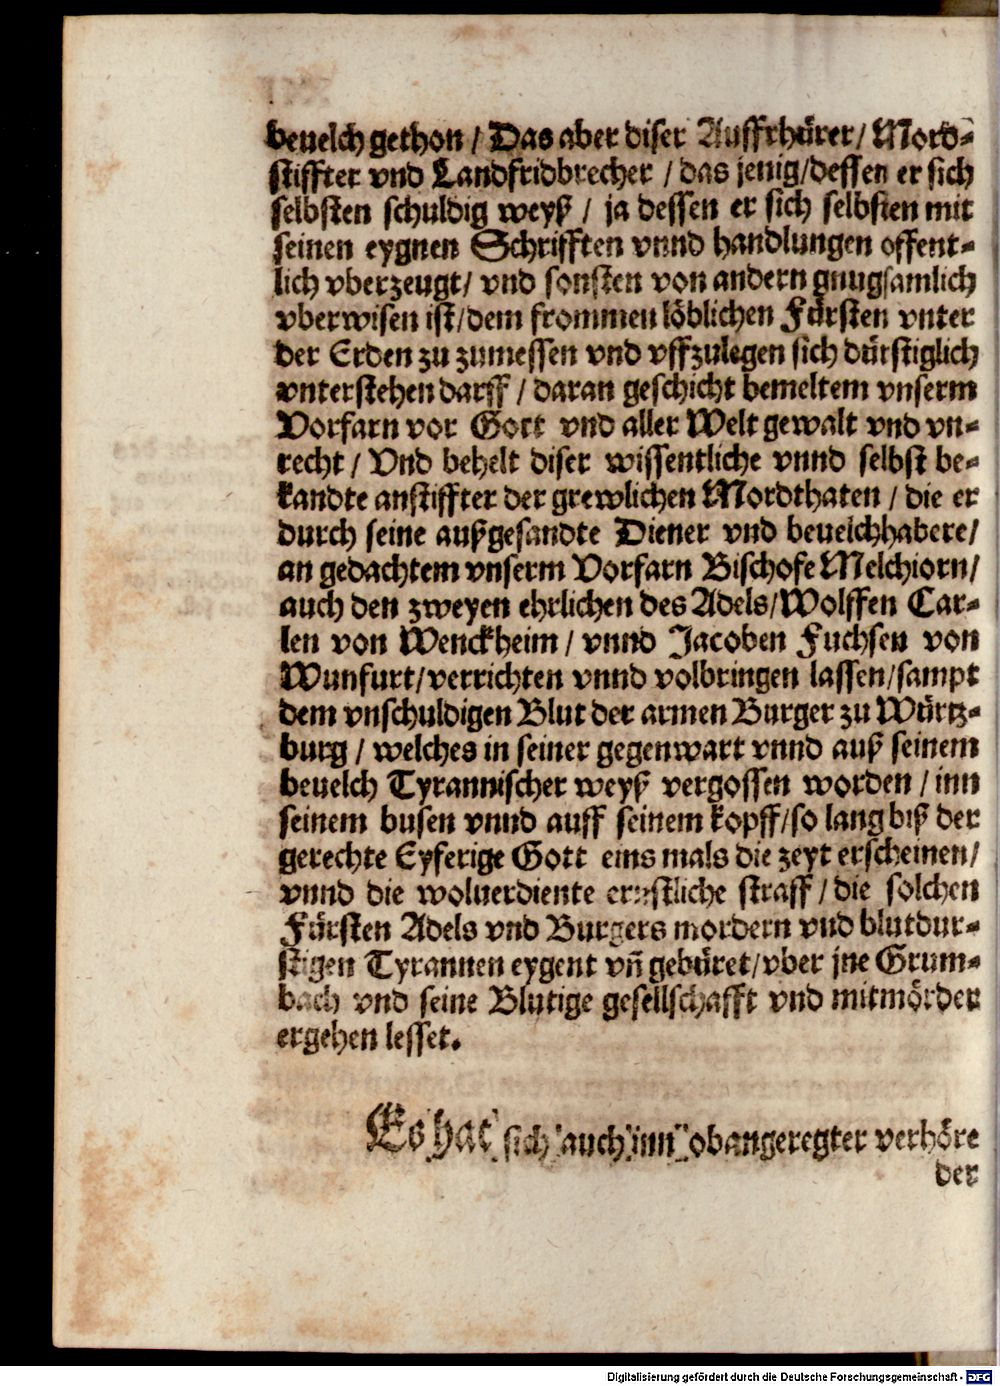 beuelch gethon / Das aber diser Auffrhürer / Mord-
stiffter vnd Landfridbrecher / das jenig / dessen er sich
selbsten schuldig weyß / ja dessen er sich selbsten mit
seinen eygnen Schrifften vnnd handlungen offent-
lich vberzeugt / vnd sonsten von andern gnugsamlich
vberwisen ist / dem frommen löblichen Fürsten vnter
der Erden zu zumessen vnd vffzulegen sich dürstiglich
vnterstehen darff / daran geschicht bemeltem vnserm
Vorfarn vor Gott vnd aller Welt gewalt vnd vn-
recht / Vnd behelt diser wissentliche vnnd selbst be-
kandte anstiffter der grewlichen Mordthaten / die er
durch seine außgesandte Diener vnd beuelchhabere /
an gedachtem vnserm Vorfarn Bischofe Melchiorn /
auch den zweyen ehrlichen des Adels / Wolffen Car-
len von Wenckheim / vnnd Jacoben Fuchsen von
Wunfurt / verrichten vnnd volbringen lassen / sampt
dem vnschuldigen Blut der armen Burger zu Würtz-
burg / welches in seiner gegenwart vnnd auß seinem
beuelch Tyrannischer weyß vergossen worden / inn
seinem busen vnnd auff seinem kopff / so lang biß der
gerechte Eyferige Gott eins mals die zeyt erscheinen /
vnnd die woluerdiente ernstliche straff / die solchen
Fürsten Adels vnd Burgers mordern vnd blutdur-
stigen Tyrannen eygent vñ gebüret / vber jne Grum-
bach vnd seine Blutige gesellschafft vnd mitmörder
ergehen lesset.
Es hat sich auch inn obangeregter verhöre
der
Digitalisierung gefördert durch die Deutsche Forschungsgemeinschaft - DFG